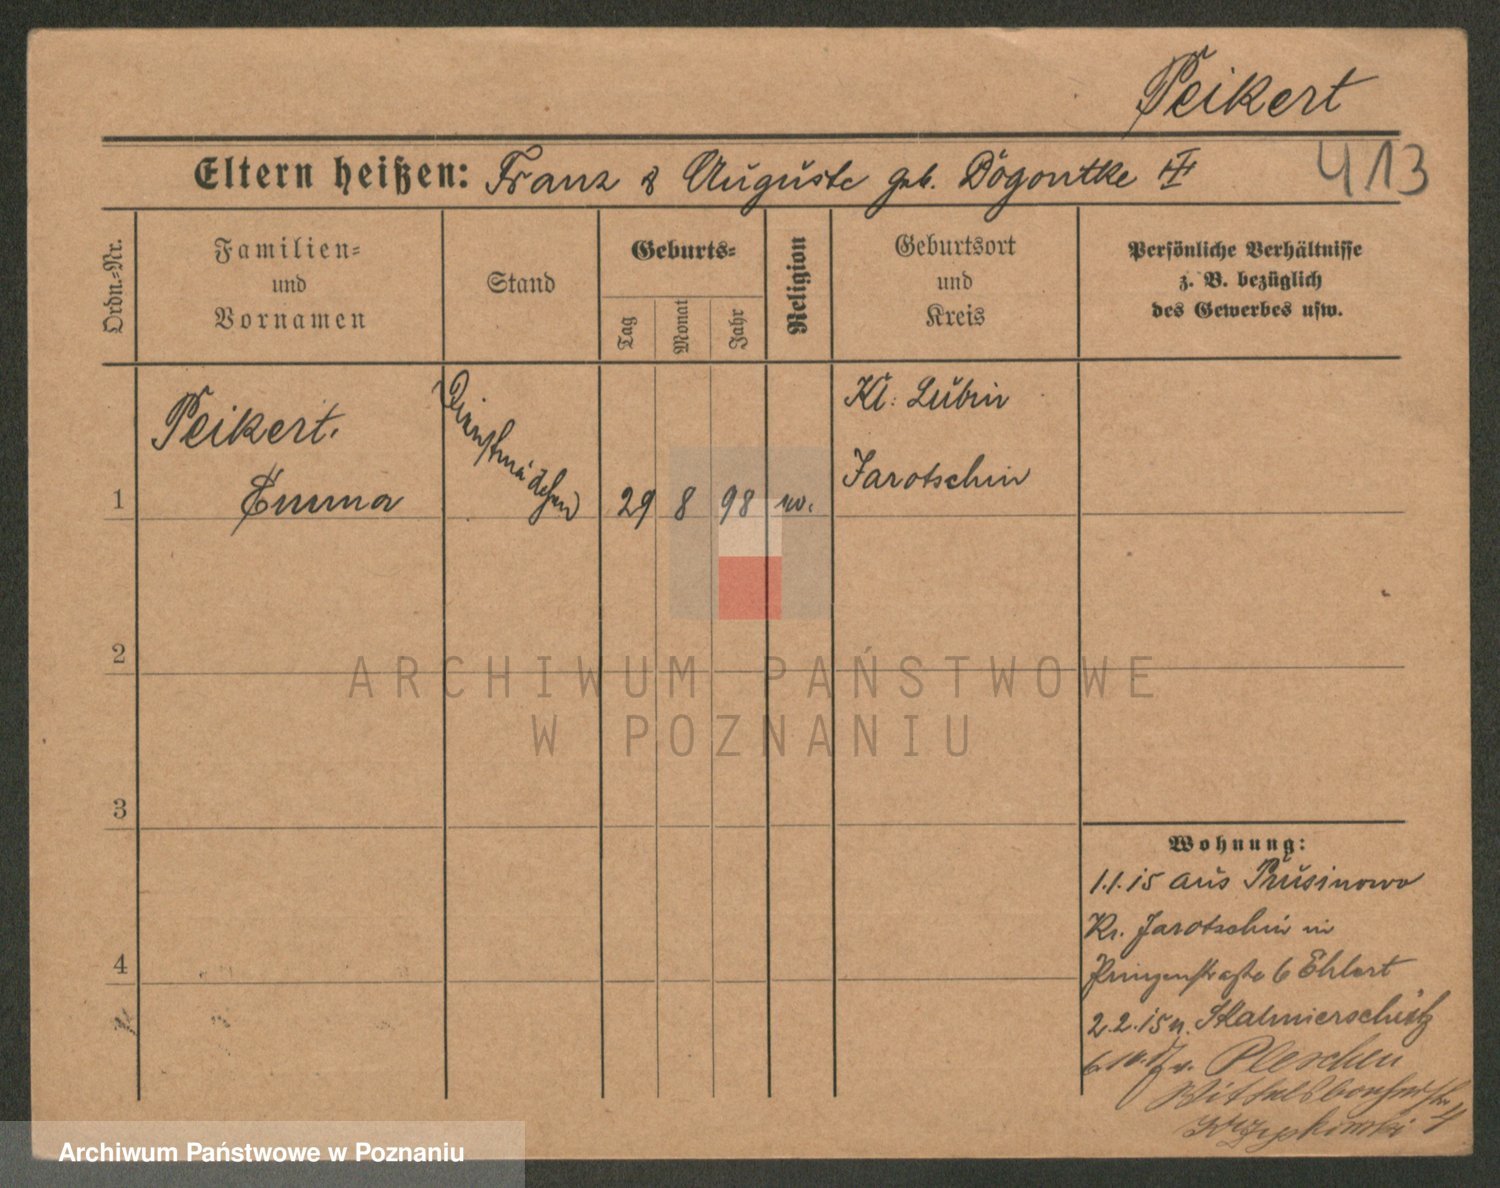 Peikert
Eltern heißen: Franz & Auguste geb. Dögontke
413
Ordn.-Nr.
Familien-
und
Vornamen
Stand
Geburts-
Tag
Monat
Jahr
Religion
Geburtsort
und
Kreis
Persönliche Verhältnisse
z. B. bezüglich
des Gewerbes usw.
1
Peikert.
Emma
Dienstmädchen
29 8 98
Kl. Lubin
Jarotschin
2
3
4
Wohnung:
1.1.15 aus Prusinowo
Kr. Jarotschin in
Prinzenstraße 6 Ehlert
2.2.15 n. Skalmierschütz
Pleschen
ARCHIWUM PAŃSTWOWE
W POZNANIU
Archiwum Państwowe w Poznaniu